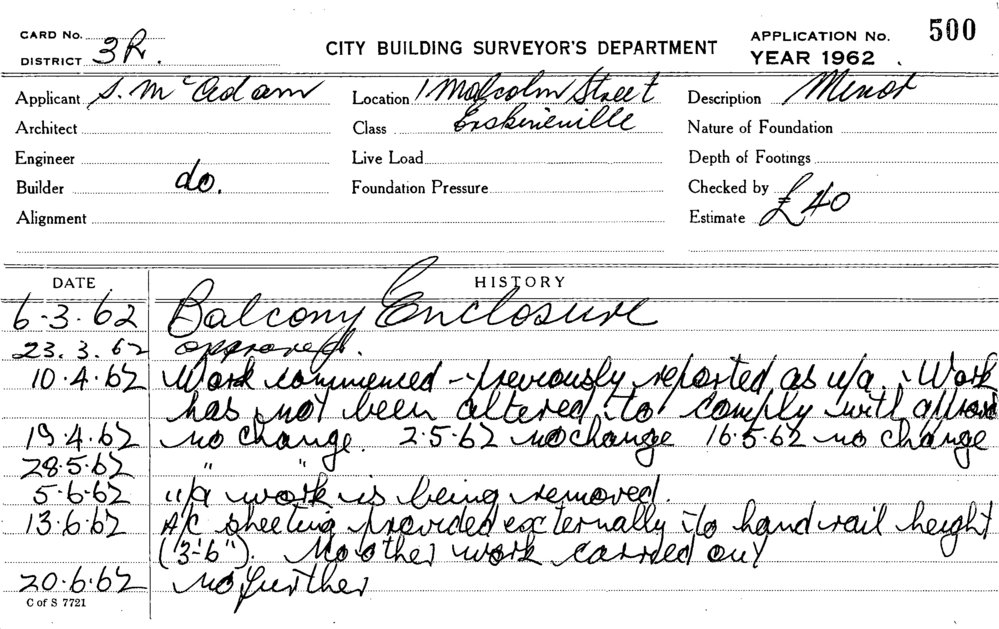 CARD No.
DISTRICT 3R.
CITY BUILDING SURVEYOR'S DEPARTMENT
APPLICATION No. 500
YEAR 1962
Applicant S. McAdam Location 1 Malcolm Street Description Minor
Architect Class Erskineville Nature of Foundation
Engineer Live Load Depth of Footings
Builder do. Foundation Pressure Checked by
Alignment Estimate £40
DATE HISTORY
6.3.62 Balcony Enclosure
23.3.62 approved.
10.4.62 Work commenced - previously reported as u/a. Work
has not been altered to comply with approval
19.4.62 no change. 2.5.62 no change 16.5.62 no change
28.5.62 " "
5.6.62 u/a work is being removed.
13.6.62 A/C sheeting provided externally to hand rail height
(3'6"). No other work carried out
20.6.62 no further
C of S 7721